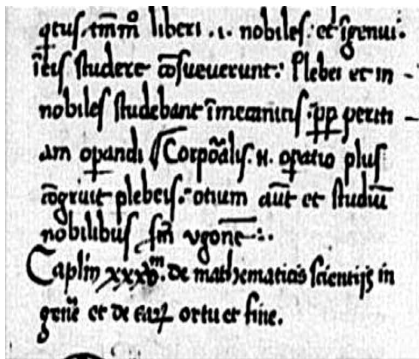 qͥtus. tm̅m̊ liberi .i. nobiles: et i̅genui:
i̅eis studere co̅sueuerunt: Plebei et in
nobiles studebant i̅mecanicis: ꝓpp periti
am oꝑandi Corpo̅alis. n. oꝑatio plus
co̅gruit plebeis: otium au̅t et studiu̅
nobilibus sm̅ vgone̅:.
Caplm̅ xxxvᵐ. de mathematicis scientijs in
gen̅e et de eaꝝ ortu et fine.